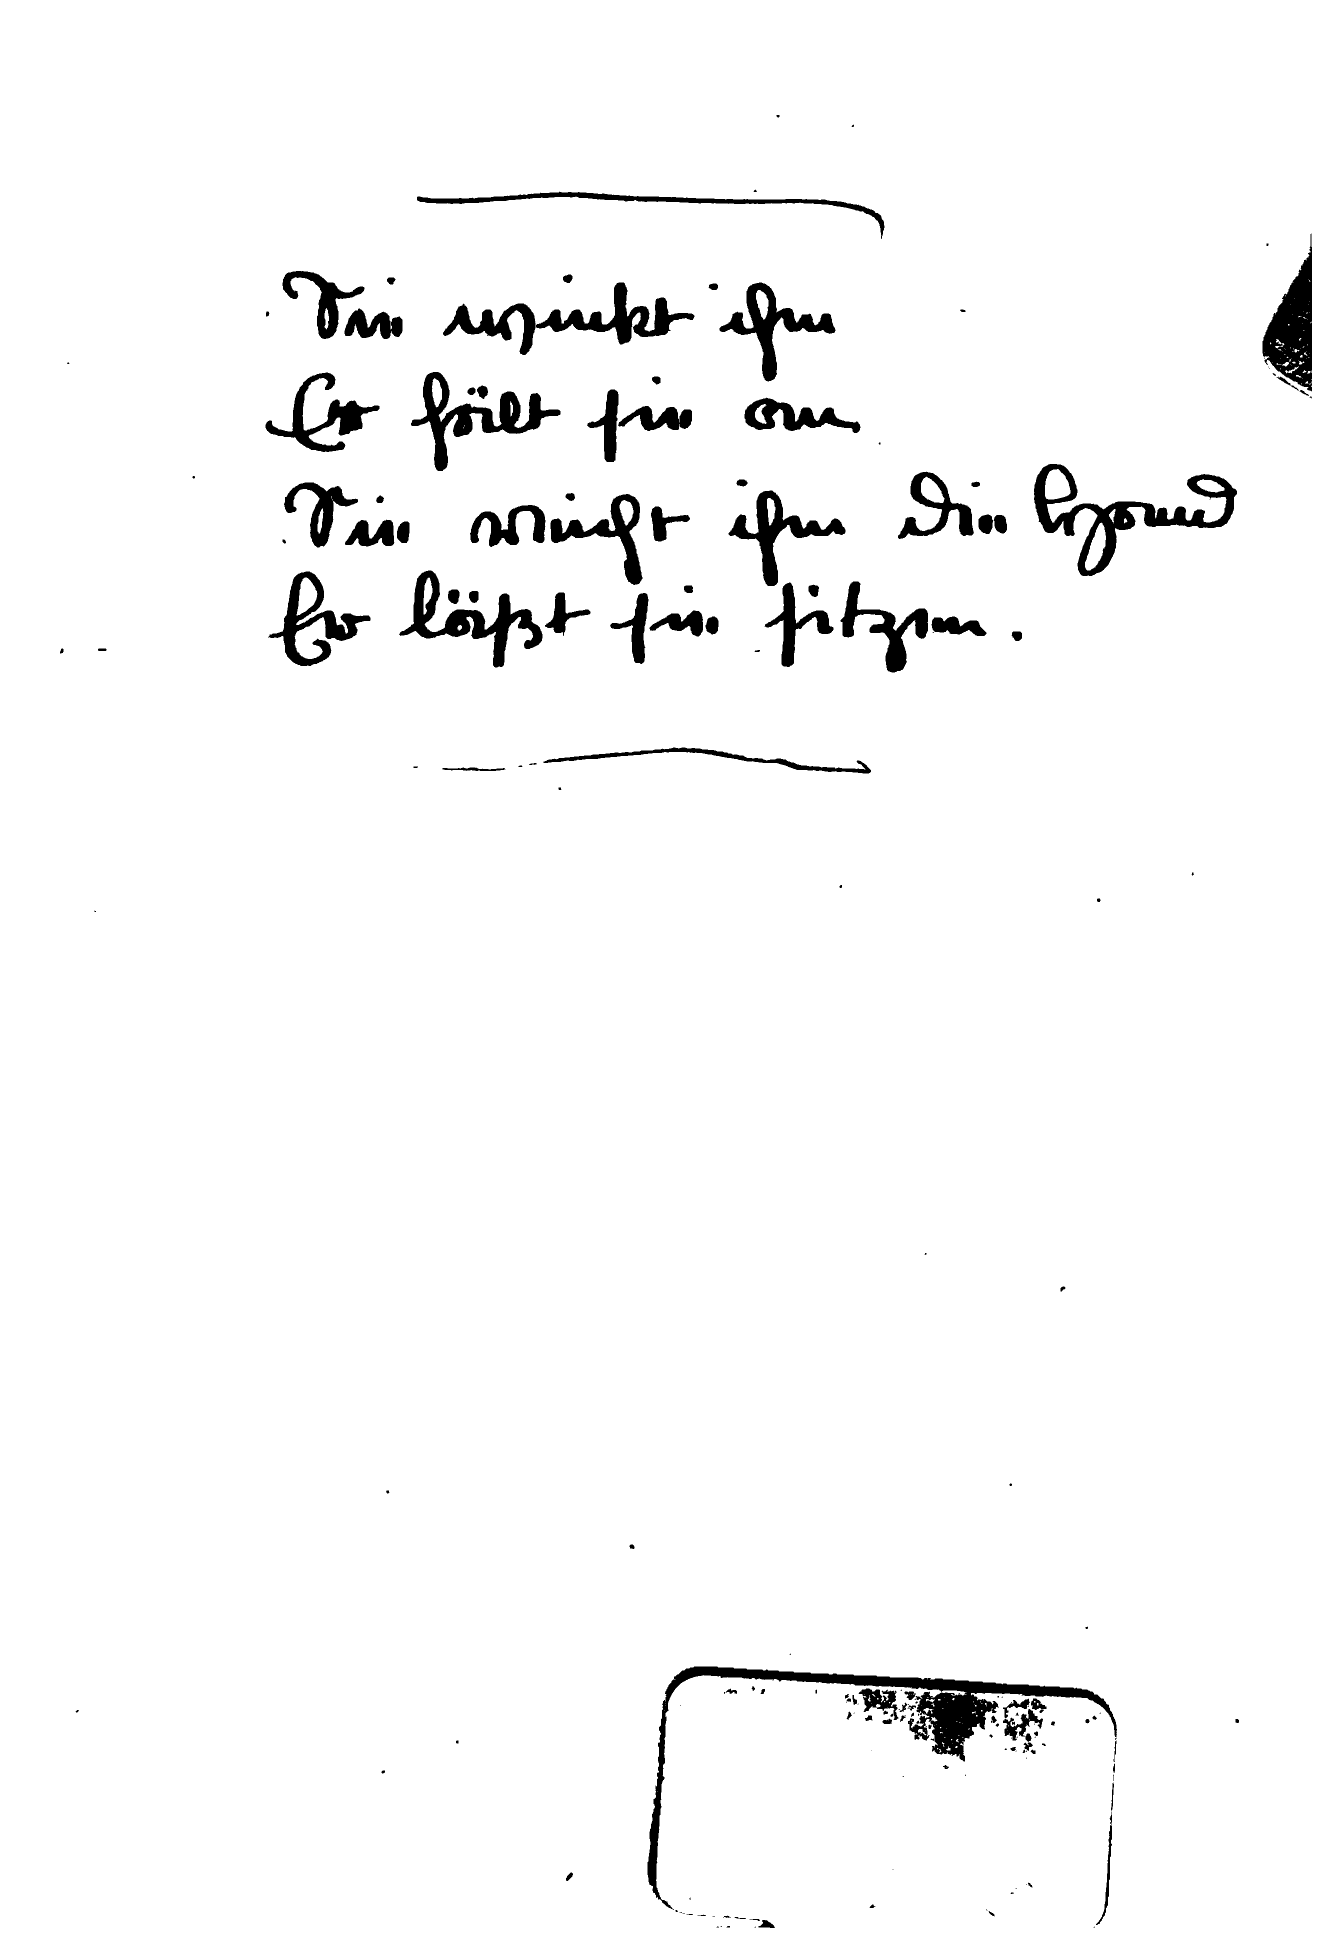 Sie winkt ihm
Er hält sie an
Sie reicht ihm die Hand
Er läßt sie sitzen.